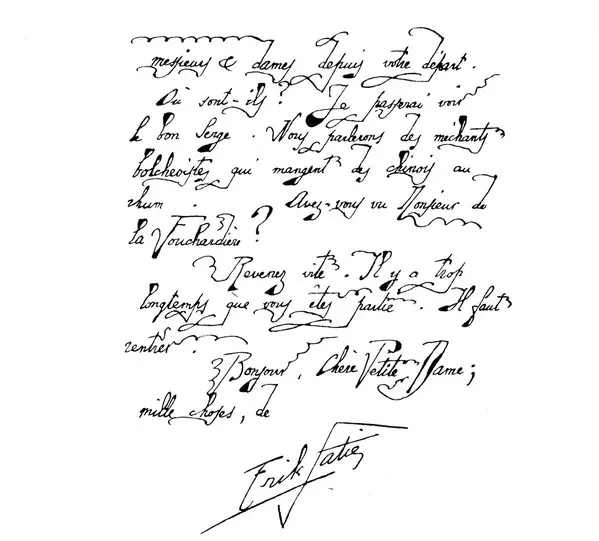 messieurs & dames depuis votre départ.
Où sont-ils? Je passerai voir
le bon Serge. Nous parlerons des méchants
bolchevistes qui mangent des chinois au
rhum. Avez-vous vu Monsieur de
la Fouchardière?
Revenez vite. Il y a trop
longtemps que vous êtes partie. Il faut
rentrer.
Bonjour, Chère Petite Dame;
mille choses, de
Erik Satie